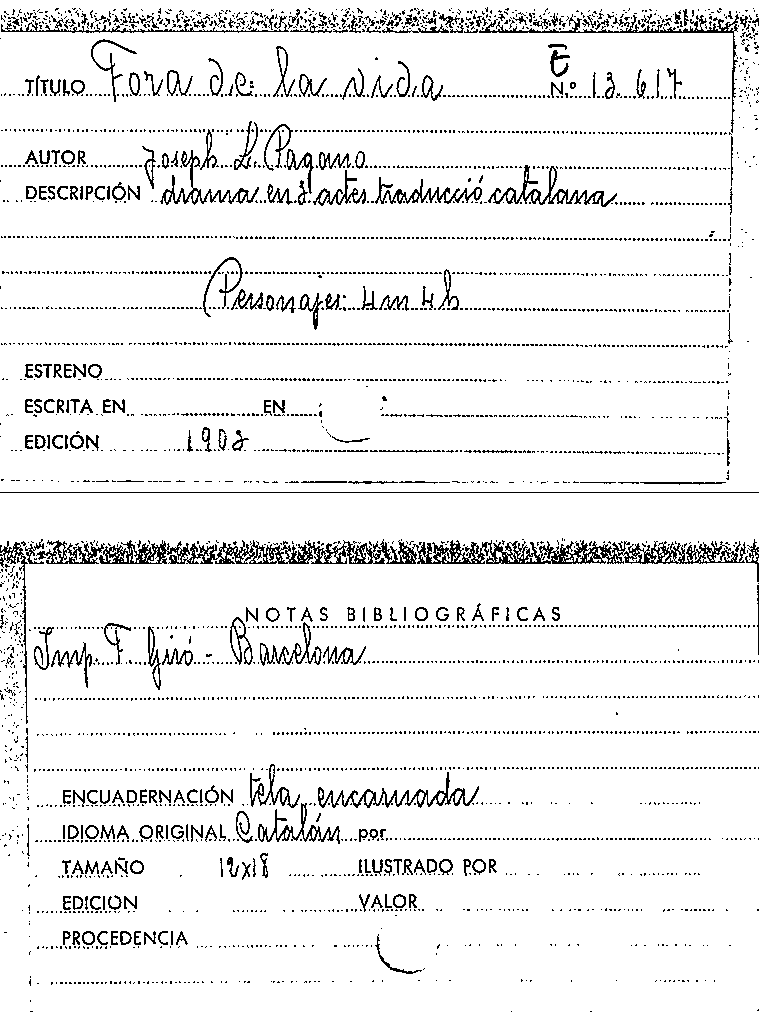 E
TÍTULO Fora de la vida N.º 13.617
AUTOR Joseph L. Pagano
DESCRIPCIÓN drama en 3 actes traducció catalana
Personajes: 4m 4h
ESTRENO
ESCRITA EN EN
EDICIÓN 1903
NOTAS BIBLIOGRÁFICAS
Imp. F. Giró - Barcelona
ENCUADERNACIÓN tela encarnada
IDIOMA ORIGINAL Catalán por
TAMAÑO 12x18 ILUSTRADO POR
EDICION VALOR
PROCEDENCIA